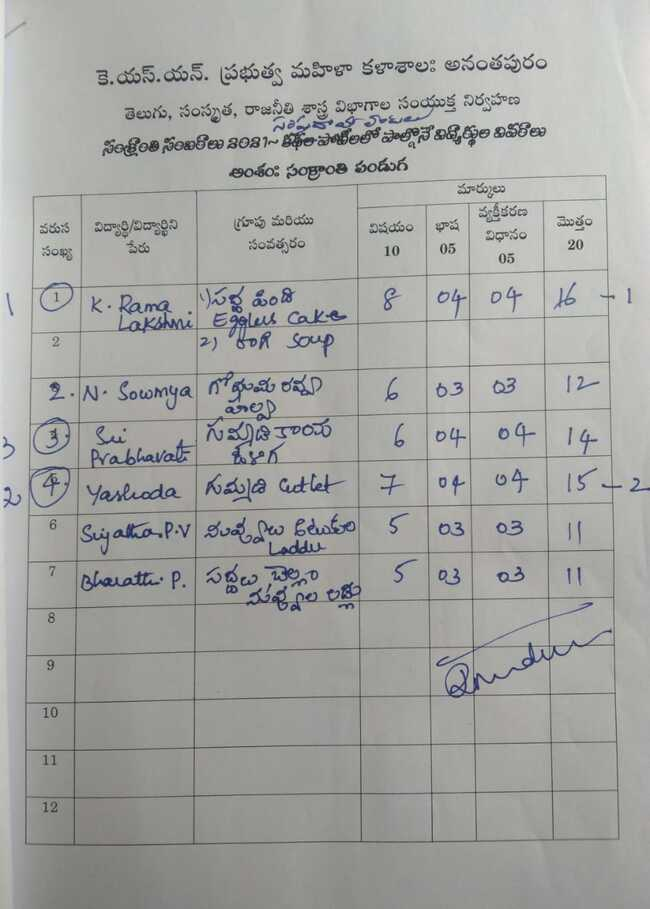 కె.యస్.యన్. ప్రభుత్వ మహిళా కళాశాల: అనంతపురం
తెలుగు, సంస్కృత, రాజనీతి శాస్త్ర విభాగాల సంయుక్త నిర్వహణ
సంక్రాంతి సంబరాలు 2021~ పోటీలలో పాల్గొనే విద్యార్థుల వివరాలు
అంశం: సంక్రాంతి పండుగ
వరుస సంఖ్య విద్యార్థి/విద్యార్థిని పేరు గ్రూపు మరియు సంవత్సరం మార్కులు
విషయం 10 భాష 05 వ్యక్తీకరణ విధానం 05 మొత్తం 20
1 1 K. Rama Lakshmi 1) సద్ద పిండి Eggless Cake 8 04 04 16 - 1
2 2) రాగి Soup
2. N. Sowmya గోధుమ రవ్వ హల్వా 6 03 03 12
3 3. Sri Prabhavati గుమ్మడి కాయ 6 04 04 14
2 4. Yashoda గుమ్మడి Cutlet 7 04 04 15 - 2
6 P.V నువ్వులు అటుకుల Laddu 5 03 03 11
7 Bharathi. P. సద్దలు బెల్లం నువ్వుల లడ్డు 5 03 03 11
8
9
10
11
12